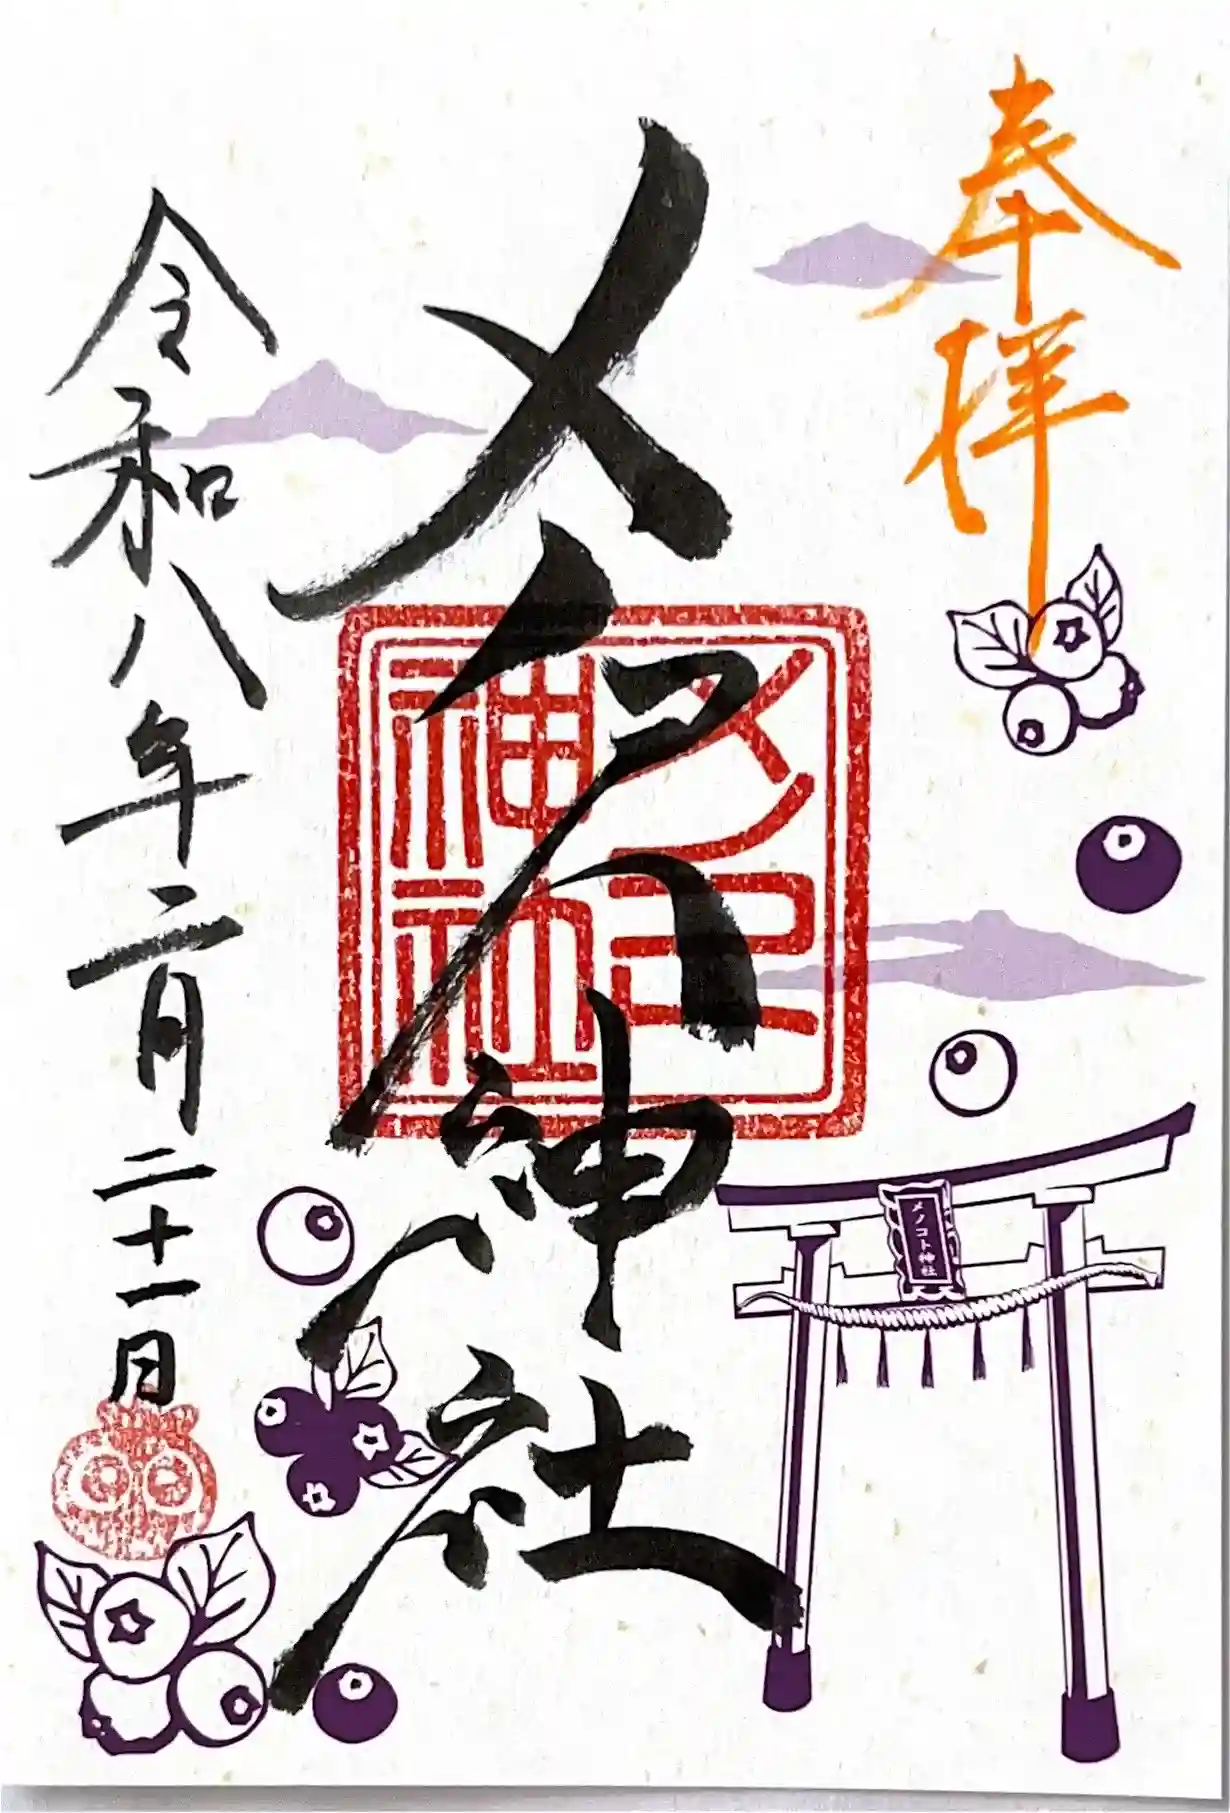 奉拝
メノコト神社
令和八年二月二十一日
メノコト神社
神社